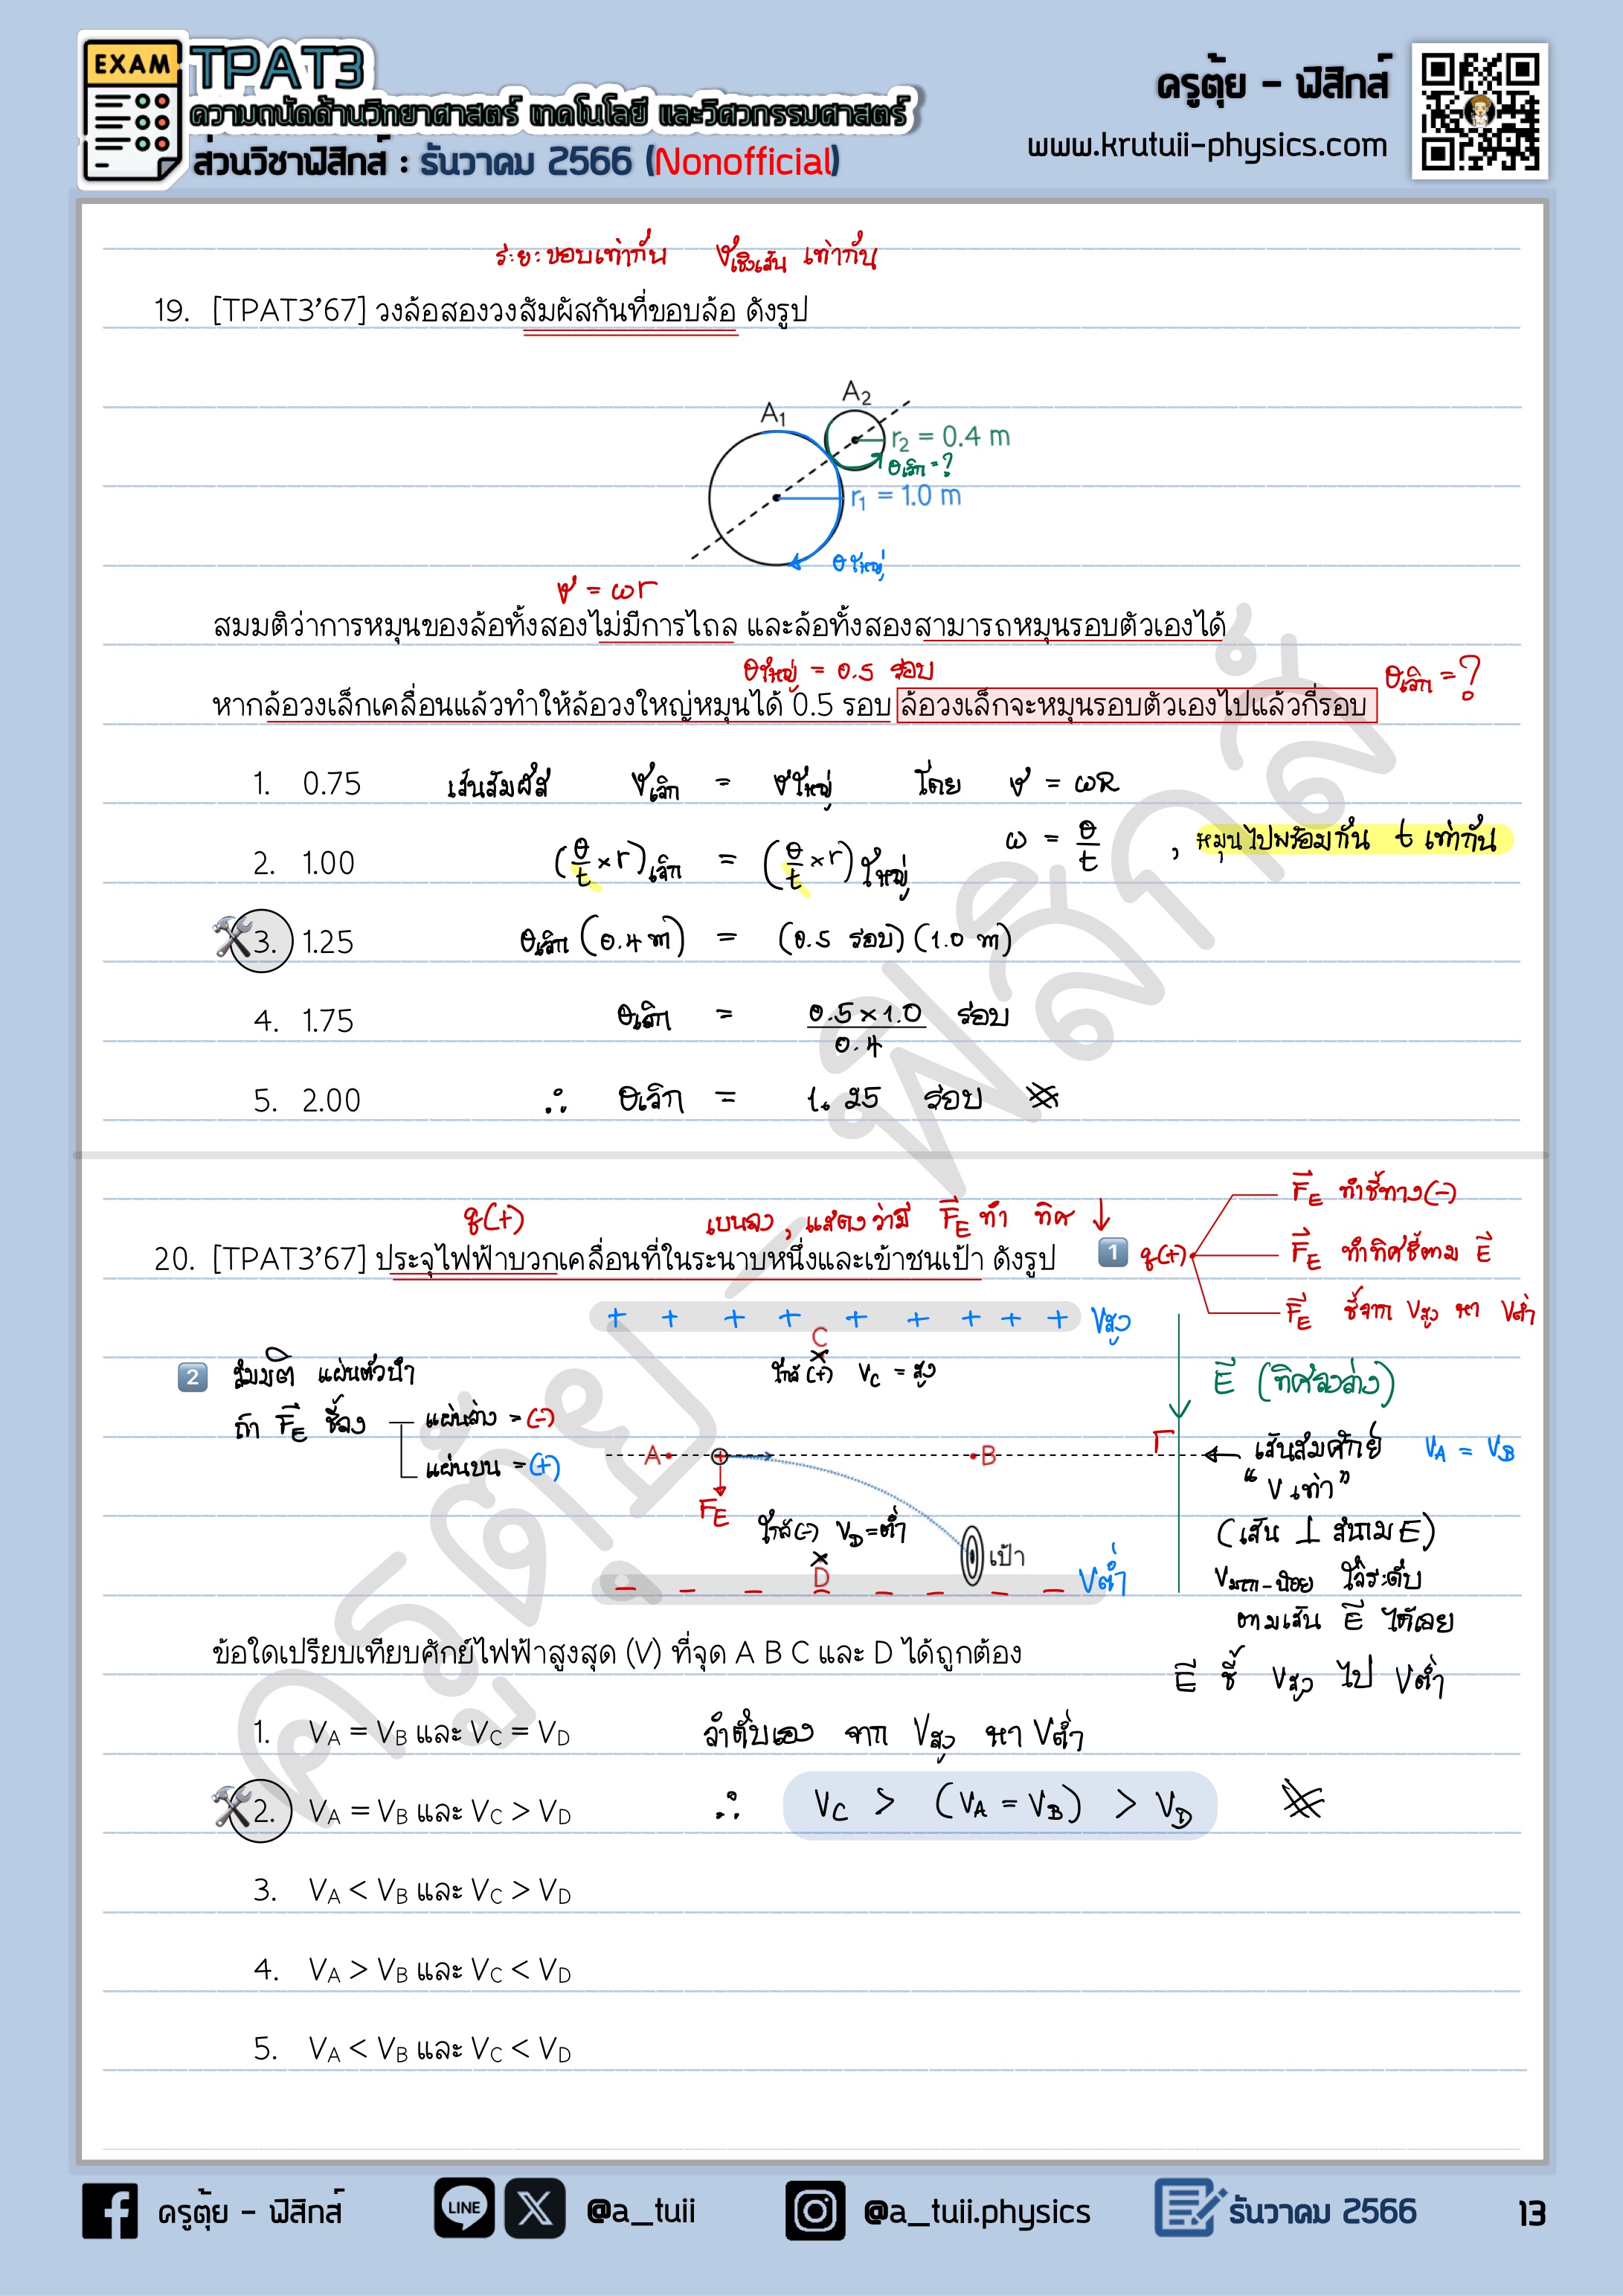 EXAM
TPAT3
ความถนัดด้านวิทยาศาสตร์ เทคโนโลยี และวิศวกรรมศาสตร์
ส่วนวิชาฟิสิกส์ : ธันวาคม 2566 (Nonofficial)
ครูตุ้ย - ฟิสิกส์
www.krutuii-physics.com
ระยะขอบเท่ากัน vเชิงเส้น เท่ากัน
19. [TPAT3'67] วงล้อสองวงสัมผัสกันที่ขอบล้อ ดังรูป
A₂
A₁
r₂ = 0.4 m
θเล็ก = ?
r₁ = 1.0 m
θใหญ่
v = ωr
สมมติว่าการหมุนของล้อทั้งสองไม่มีการไถล และล้อทั้งสองสามารถหมุนรอบตัวเองได้
θใหญ่ = 0.5 รอบ
θเล็ก = ?
หากล้อวงเล็กเคลื่อนแล้วทำให้ล้อวงใหญ่หมุนได้ 0.5 รอบ ล้อวงเล็กจะหมุนรอบตัวเองไปแล้วกี่รอบ
1. 0.75 เส้นสัมผัส vเล็ก = vใหญ่ โดย v = ωR
ω = θ/t , หมุนไปพร้อมกัน t เท่ากัน
2. 1.00 (θ/t × r)เล็ก = (θ/t × r)ใหญ่
3. 1.25 θเล็ก (0.4 m) = (0.5 รอบ) (1.0 m)
4. 1.75 θเล็ก = 0.5 × 1.0 / 0.4 รอบ
5. 2.00 ∴ θเล็ก = 1.25 รอบ
q(+) เบนลง , แสดงว่ามี F⃗E ทำ ทิศ ↓
20. [TPAT3'67] ประจุไฟฟ้าบวกเคลื่อนที่ในระนาบหนึ่งและเข้าชนเป้า ดังรูป
1 q(+)
F⃗E ทำชี้ทาง (-)
F⃗E ทำทิศชี้ตาม E⃗
F⃗E ชี้จาก Vสูง หา Vต่ำ
+ + + + + + + + + Vสูง
C
ใกล้ (+) VC = สูง
2 สมมติ แผ่นตัวนำ
ถ้า F⃗E ชี้ลง
แผ่นล่าง = (-)
แผ่นบน = (+)
E⃗ (ทิศลงล่าง)
A + B
เส้นสมศักย์ VA = VB
"V เท่า"
FE
ใกล้ (-) VD = ต่ำ
(เส้น ⊥ สนาม E)
เป้า
D
- - - - - - - - Vต่ำ
Vมาก-น้อย ไล่ระดับ
ตามเส้น E⃗ ได้เลย
E⃗ ชี้ Vสูง ไป Vต่ำ
ข้อใดเปรียบเทียบศักย์ไฟฟ้าสูงสุด (V) ที่จุด A B C และ D ได้ถูกต้อง
1. VA = VB และ VC = VD ลำดับเอง จาก Vสูง หา Vต่ำ
2. VA = VB และ VC > VD ∴ VC > (VA = VB) > VD
3. VA < VB และ VC > VD
4. VA > VB และ VC < VD
5. VA < VB และ VC < VD
ครูตุ้ย - ฟิสิกส์
ครูตุ้ย - ฟิสิกส์
LINE
@a_tuii
@a_tuii.physics
ธันวาคม 2566
13